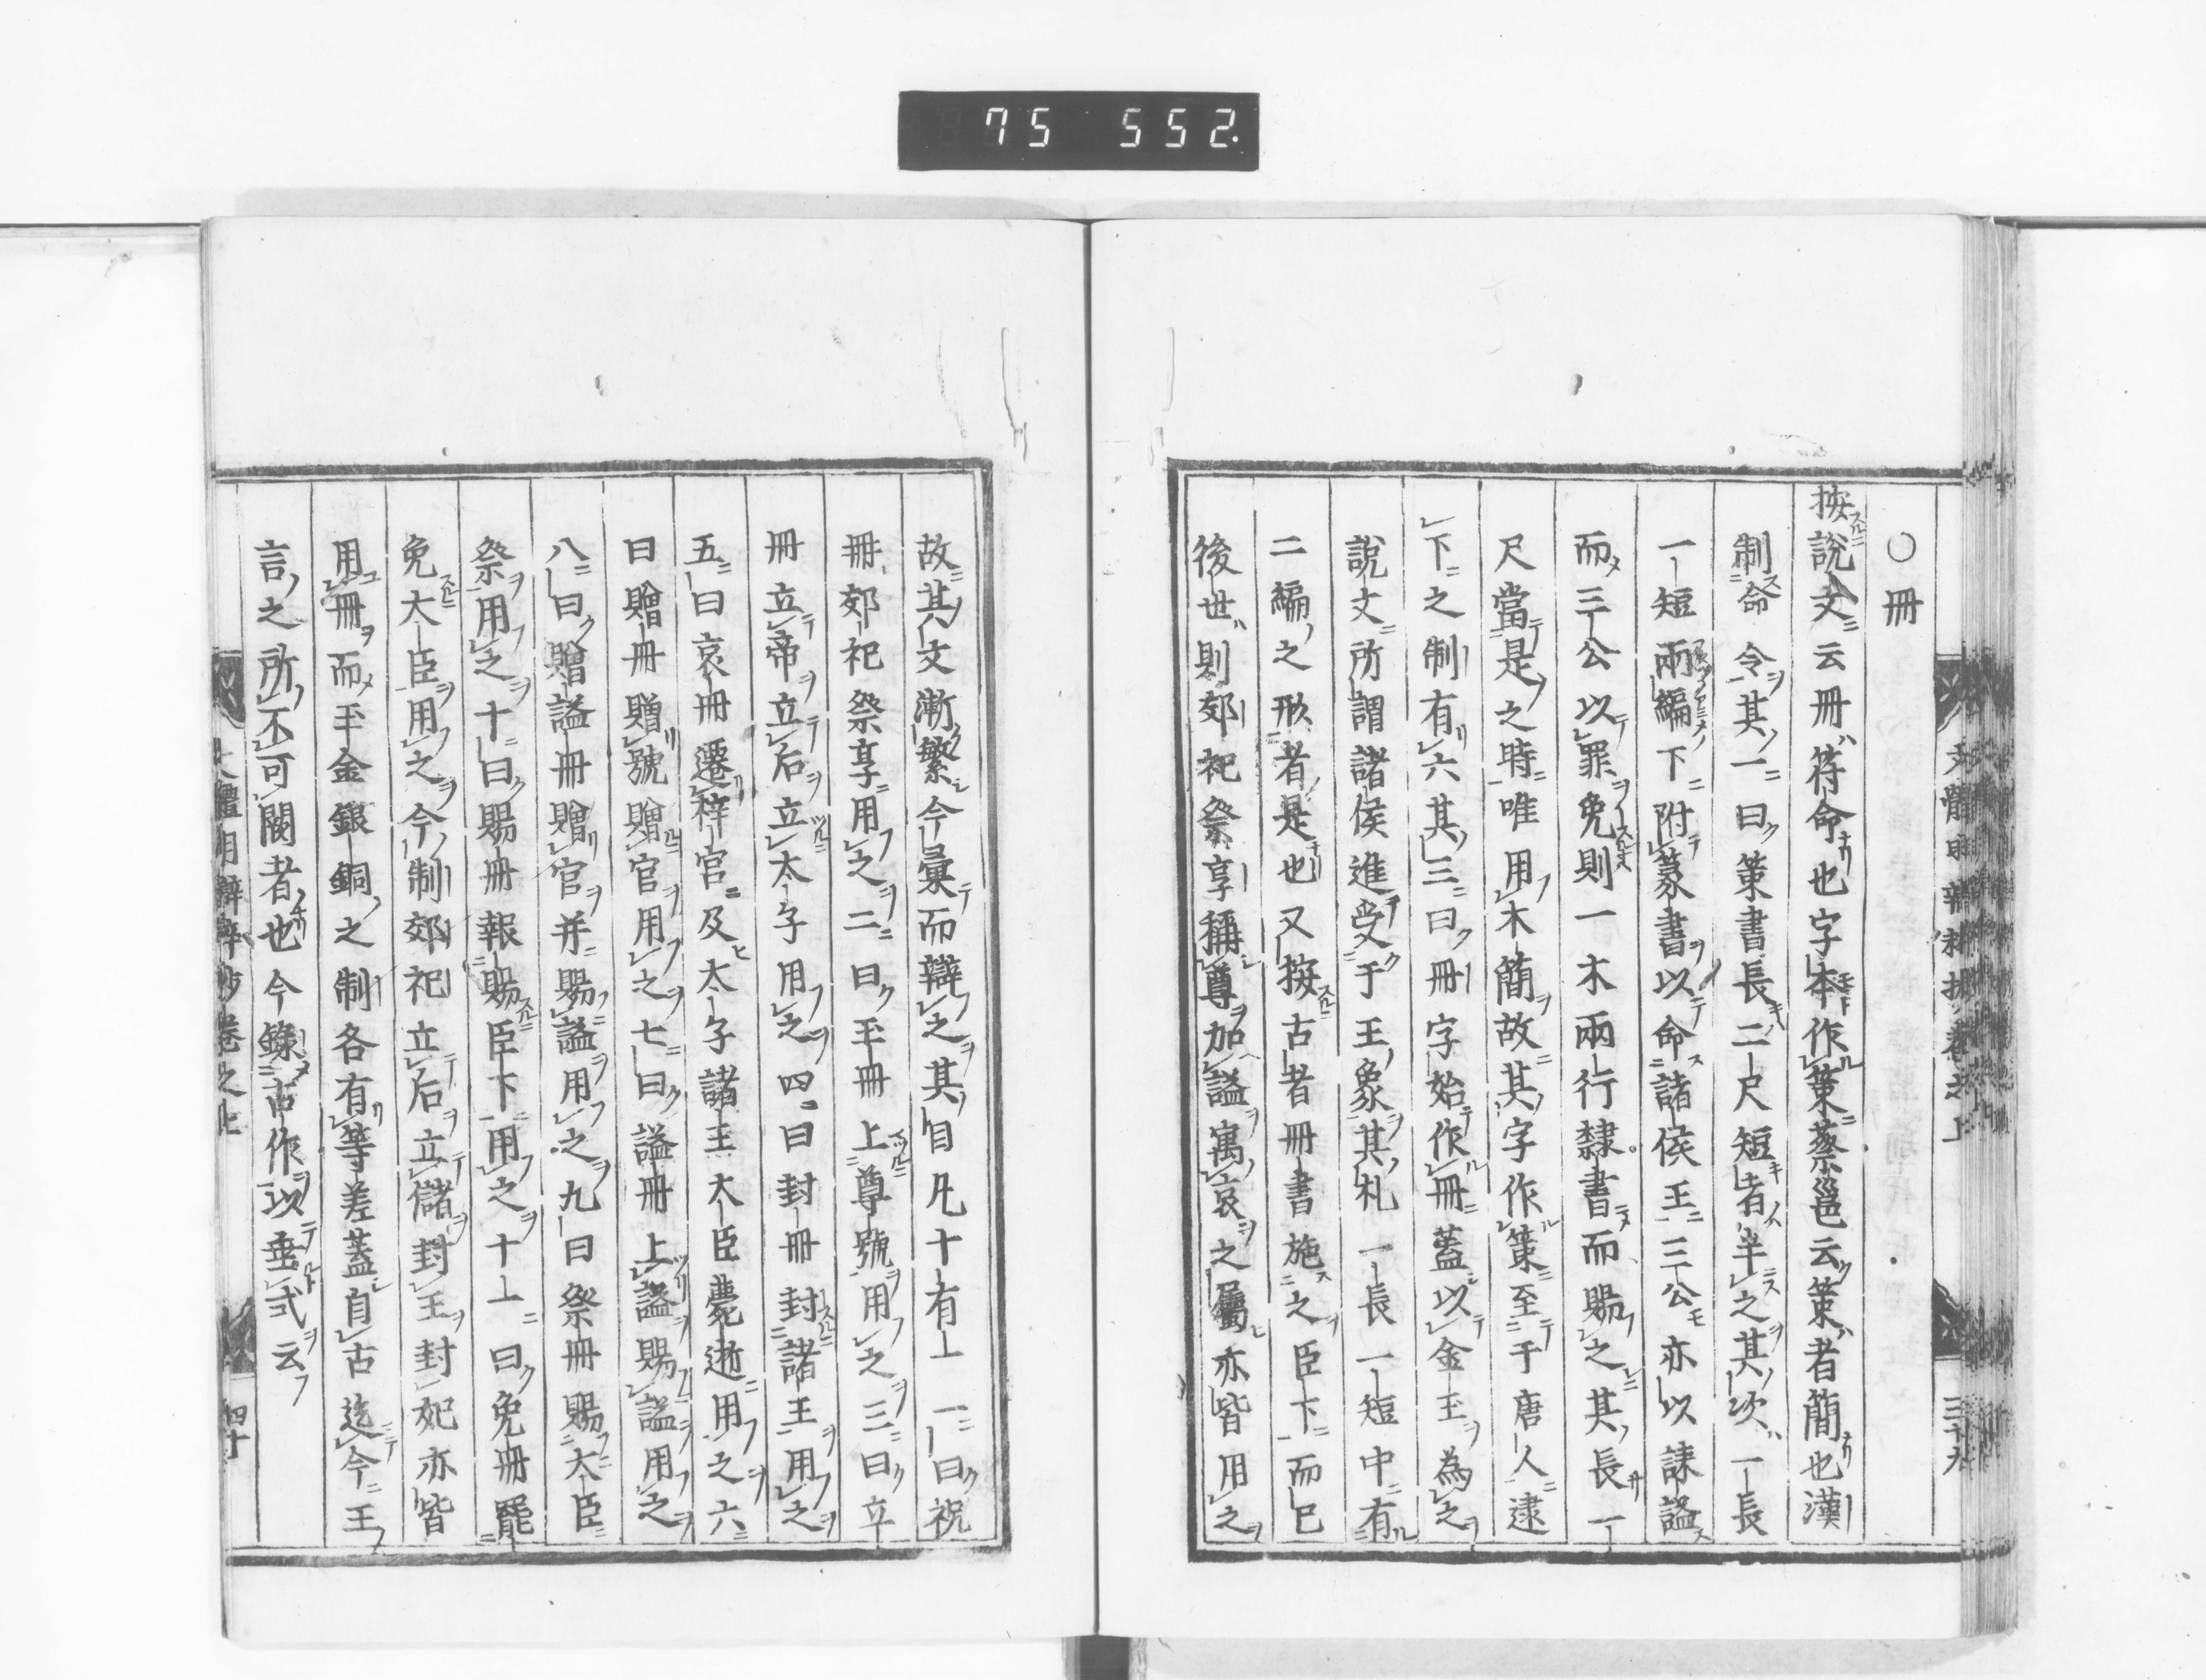 75 552.
○冊
按說文云冊符命也字本作策蔡邕云策者簡也漢
制命令其一曰策書長二尺短者半之其次一長
一短兩編下附篆書以命諸侯王三公亦以誄謚
而三公以罪免則一木兩行隸書而賜之其長一
尺當是之時唯用木簡故其字作策至于唐人逮
下之制有六其三曰冊字始作冊蓋以金玉為之
說文所謂諸侯進受于王象其札一長一短中有
二編之形者是也又按古者冊書施之臣下而已
後世則郊祀祭享稱尊加謚寓哀之屬亦皆用之
三十九
故其文漸繁今彙而辯之其目凡十有一一曰祝
冊郊祀祭享用之二曰玉冊上尊號用之三曰立
冊立帝立后立太子用之四曰封冊封諸王用之
五曰哀冊遷梓宮及太子諸王大臣薨逝用之六
曰贈冊贈號贈官用之七曰謚冊上謚賜謚用之
八曰贈謚冊贈官并賜謚用之九曰祭冊賜大臣
祭用之十曰賜冊報賜臣下用之十一曰免冊罷
免大臣用之今制郊祀立后立儲封王封妃亦皆
用冊而玉金銀銅之制各有等差蓋自古迄今王
言之所不可闕者也今錄古作以垂式云
四十